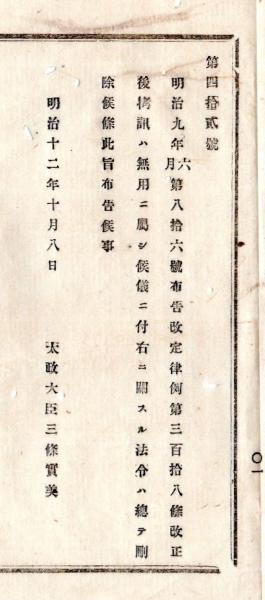 第四拾貳號
明治九年六月第八拾六號布告改定律例第三百拾八條改正
後拷訊ハ無用ニ屬シ候儀ニ付右ニ關スル法令ハ總テ刪
除候條此旨布告候事
明治十二年十月八日 太政大臣三條實美